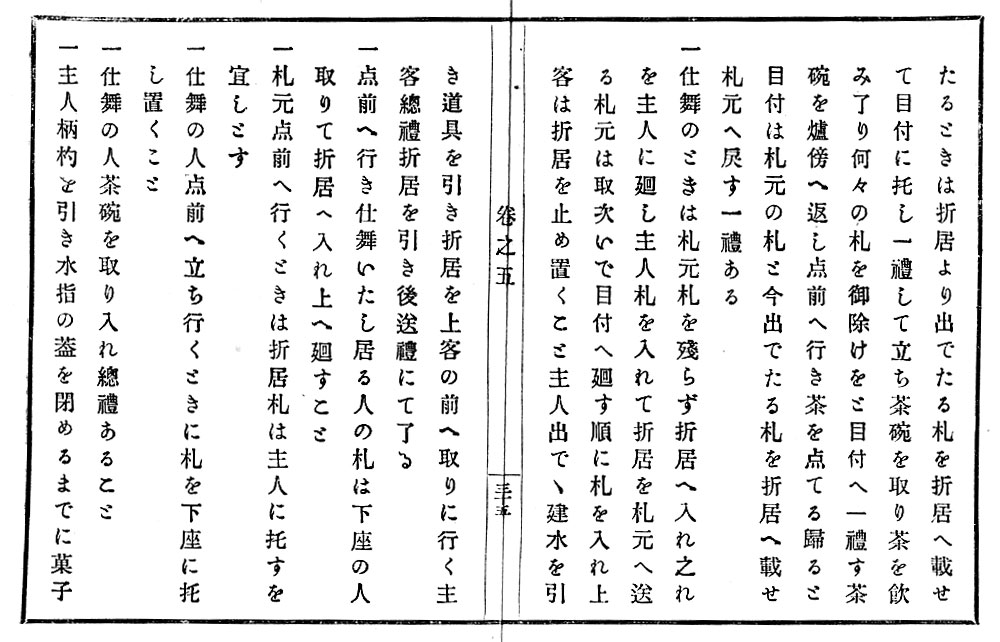 たるときは折居より出でたる札を折居へ載せ
て目付に托し一禮して立ち茶碗を取り茶を飮
み了り何々の札を御除けをと目付へ一禮す茶
碗を爐傍へ返し点前へ行き茶を点てる歸ると
目付は札元の札と今出でたる札を折居へ載せ
札元へ戻す一禮ある
一仕舞のときは札元札を殘らず折居へ入れ之れ
を主人に廻し主人札を入れて折居を札元へ送
る札元は取次いで目付へ廻す順に札を入れ上
客は折居を止め置くこと主人出でゝ建水を引
卷之五
三十五
き道具を引き折居を上客の前へ取りに行く主
客總禮折居を引き後送禮にて了る
一点前へ行き仕舞いたし居る人の札は下座の人
取りて折居へ入れ上へ廻すこと
一札元点前へ行くときは折居札は主人に托すを
宜しとす
一仕舞の人点前へ立ち行くときに札を下座に托
し置くこと
一仕舞の人茶碗を取り入れ總禮あること
一主人柄杓を引き水指の蓋を閉めるまでに菓子